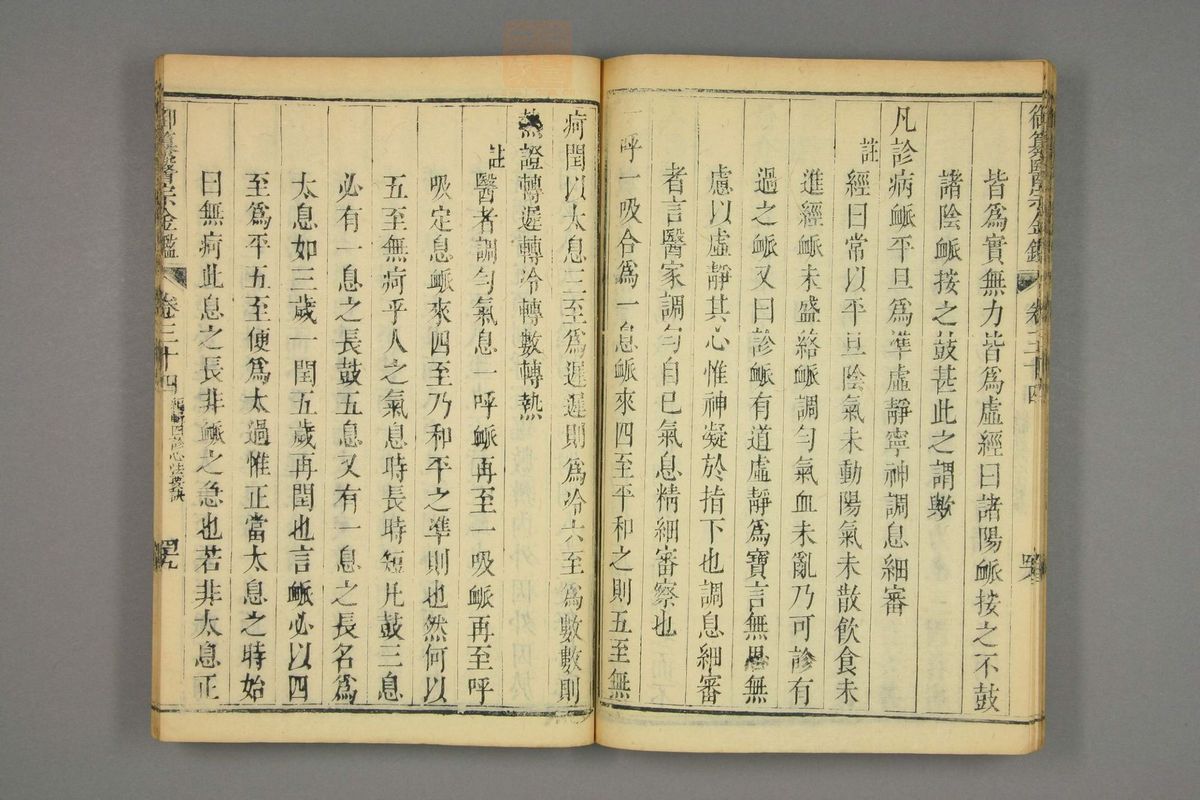 皆爲實無力皆爲虛經曰諸陽脈按之不鼓
諸陰脈按之鼓甚此之謂歟
凡診病脈平旦爲準虛靜寧神調息細審
註
經曰常以平旦陰氣未動陽氣未散飲食未
進經脈未盛絡脈調勻氣血未亂乃可診有
過之脈又曰診脈有道虛靜爲寶言無思無
慮以虛靜其心惟神凝於指下也調息細審
者言醫家調勻自己氣息精細審察也
一呼一吸合爲一息脈來四至平和之則五至無
疴閏以太息三至爲遲遲則爲冷六至爲數數則
熱證轉遲轉冷轉數轉熱
註
醫者調勻氣息一呼脈再至一吸脈再至呼
吸定息脈來四至乃和平之準則也然何以
五至無疴乎人之氣息時長時短凡鼓三息
必有一息之長鼓五息又有一息之長名爲
太息如三歲一閏五歲再閏也言脈必以四
至爲平五至便爲太過惟正當太息之時始
曰無疴此息之長非脈之急也若非太息正
御纂醫宗金鑑
卷三十四
編輯四診心法要訣